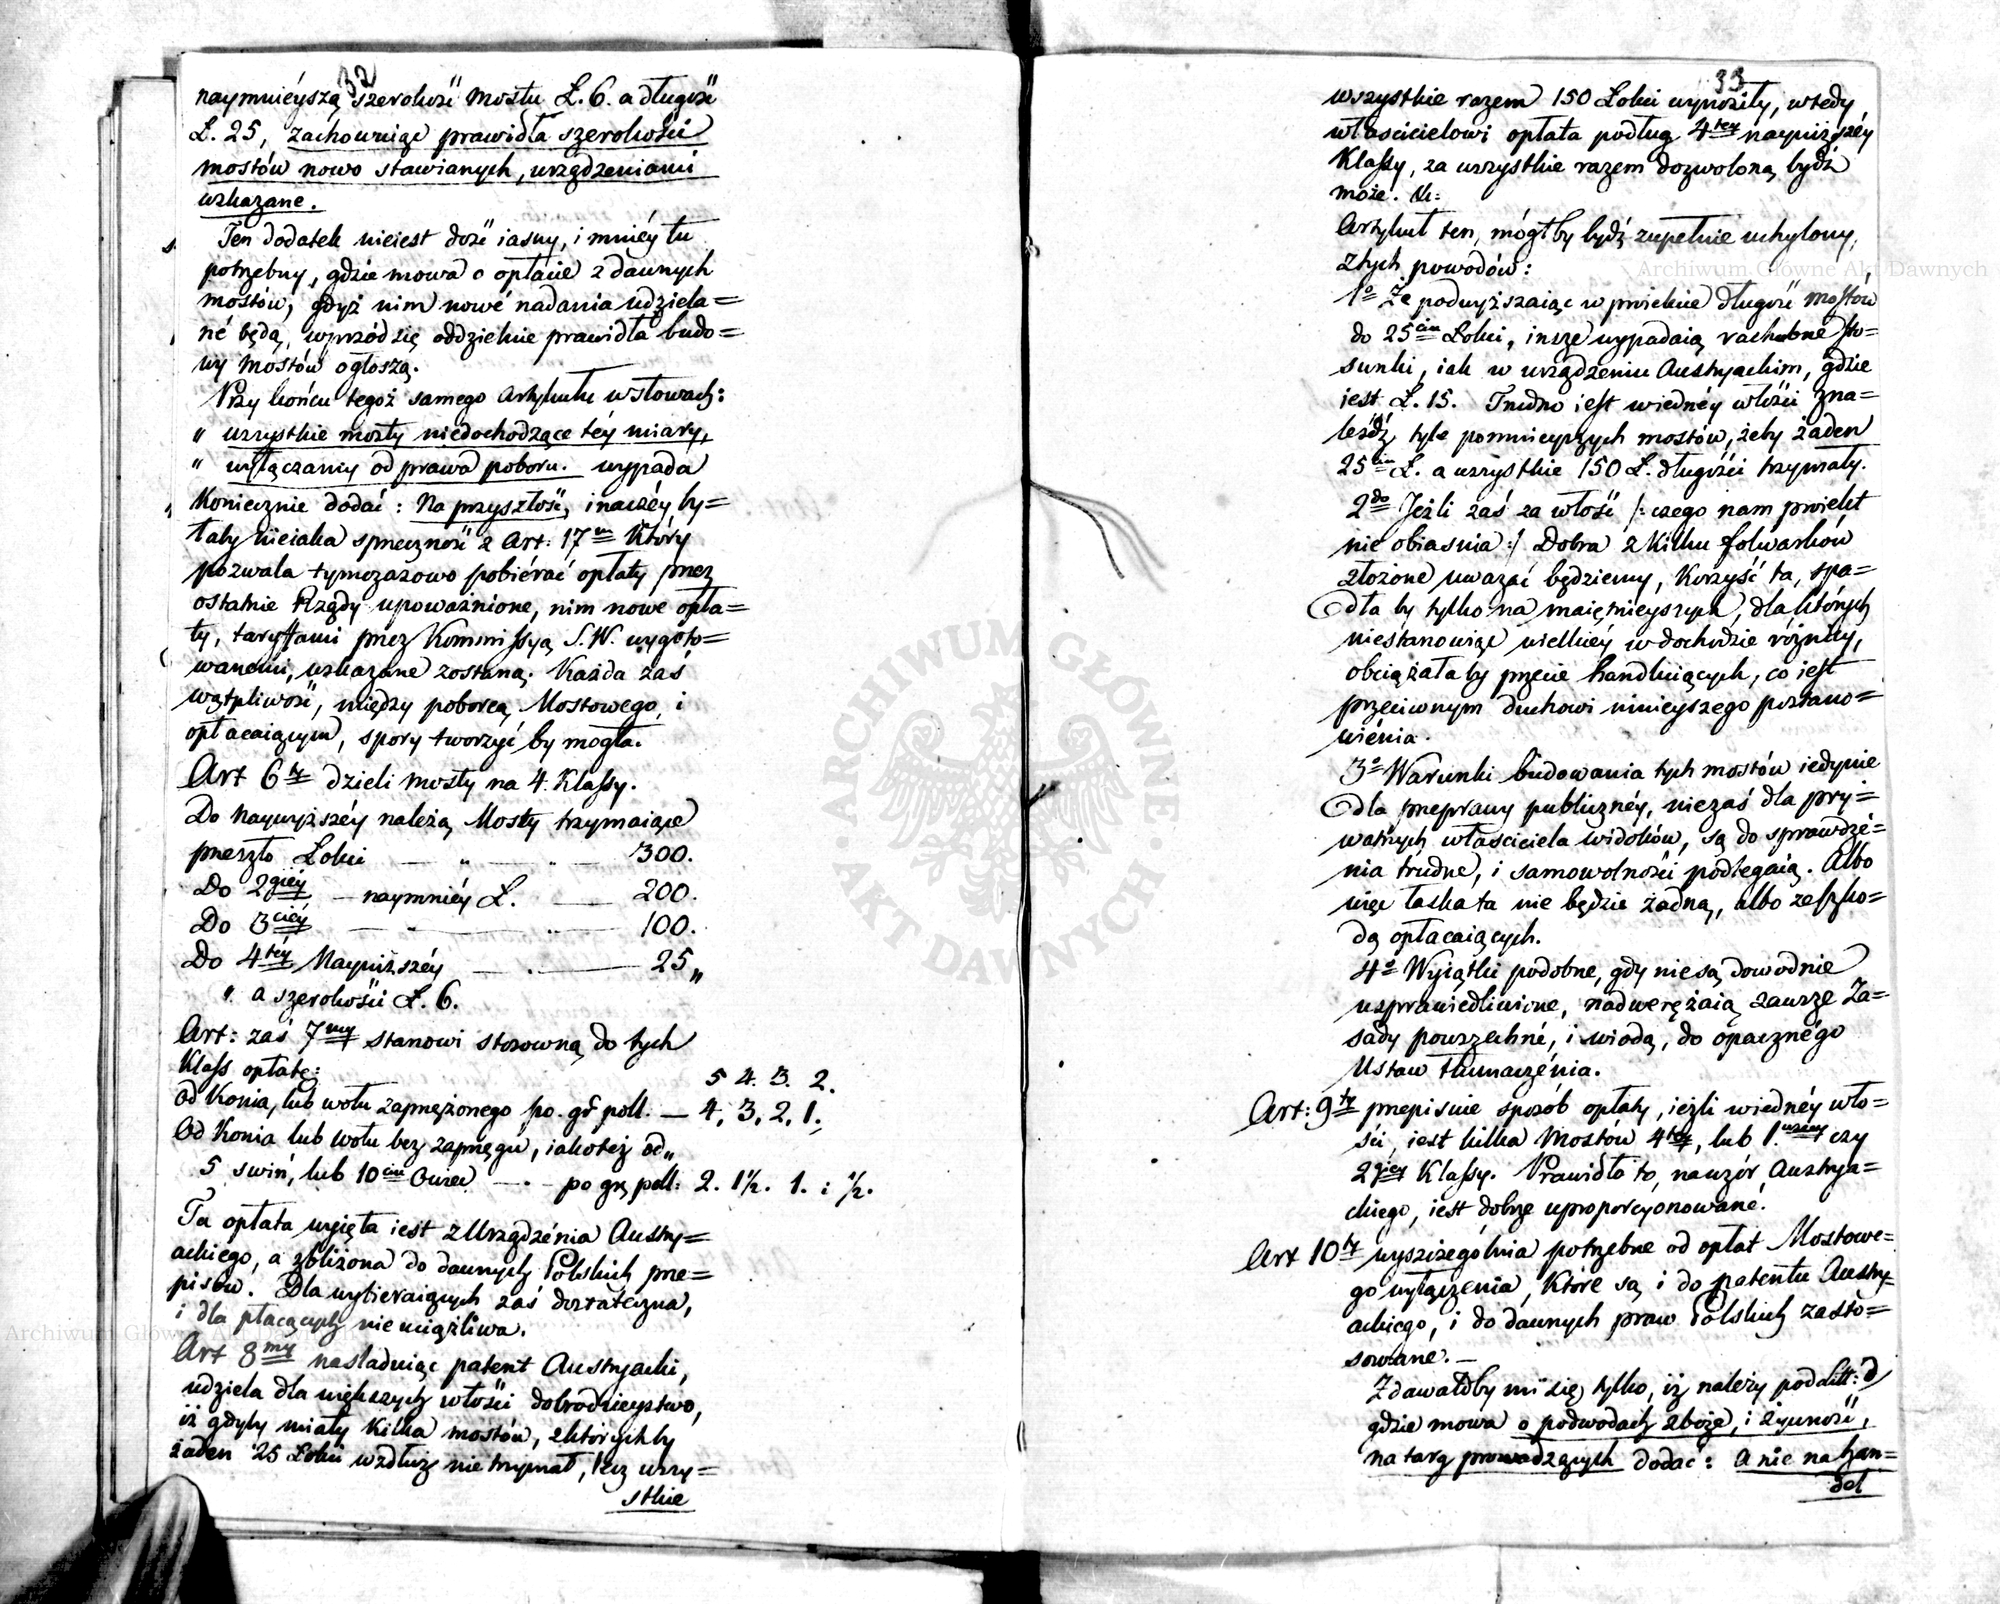 32
naymnieyszą szerokość Mostu Ł. 6. a długość
Ł. 25, zachowuiąc prawidła szerokości
mostów nowo stawianych, urządzeniami
wskazane.
Ten dodatek nieiest dość iasny, i mniéy tu
potrzebny, gdzie mowa o opłacie z dawnych
mostów, gdyż nim nowé nadania udziela=
né będą, wprzód się oddzielnie prawidła budo=
wy mostów ogłoszą.
Przy końcu tegoż samego Artykułu w słowach:
" wszystkie mosty niedochodzące téy miary,
" wyłączamy od prawa poboru. wypada
koniecznie dodać: Na przyszłość, inaczéy by=
łaby nieiaka sprzeczność z Art: 17m Który
pozwala tymczasowo pobiérać opłaty przez
ostatnie Rządy upoważnione, nim nowe opła=
ty, taryffami przez Kommissyą S. W. wygoto=
wanemi, wskazane zostaną. Każda zaś
wątpliwość, między poborcą Mostowego i
opłacaiącym, spory tworzyć by mogła.
Art 6ty dzieli mosty na 4. Klassy.
Do Naywyższéy należą Mosty trzymaiące
przeszło Łokci — " — — 300.
Do 2giéy — naymniéy Ł. — 200.
Do 3ciéy — — " — 100.
Do 4téy Nayniższéy — . — 25 "
" a szerokości Ł. 6.
Art: zaś 7my stanowi stosowną do tych
Klass opłatę: 5 4. 3. 2.
Od Konia, lub wołu zaprzężonego po. gr poll. — 4. 3. 2. 1.
Od Konia lub wołu bez zaprzęgu, iakoteż od "
5 swiń, lub 10ciu Owiec — . — po gr. poll: 2. 1½. 1. i ½.
Ta opłata wzięta iest z Urządzénia Austry=
ackiego, a zbliżona do dawnych Polskich prze=
pisów. Dla wybieraiących zaś dostateczna,
i dla płacących nie uciążliwa.
Art 8my nasladuiąc patent Austryacki,
udziela dla większych włości dobrodzieystwo,
iż gdyby miały kilka mostów, z których by
żaden 25 Łokci wzdłuż nie trzymał, lecz wszy=
stkie
33
wszystkie razem 150 Łokci wynosiły, wtedy
właścicielowi opłata podług 4tey nayniższéy
Klassy, za wszystkie razem dozwoloną bydź
może.
Artykuł ten, mógłby bydź zupełnie uchylony,
z tych powodów:
1o Że podwyższaiąc w proiekcie długość mostów
do 25ciu Łokci, insze wypadaią rachubne sto=
sunki, iak w urządzeniu Austryackim, gdzie
iest Ł. 15. Trudno iest wiednéy włości zna=
leśdź tyle pomnieyszych mostów, żeby żaden
25ciu Ł. a wszystkie 150 Ł. długości trzymały.
2do Jeżli zaś za włość /: czego nam proiekt
nie obiasnia :/ Dobra z Kilku folwarków
złożone uważać będziemy, Korzyść ta, spa=
dła by tylko na maiętnieyszych, dla których
niestanowiąc wielkiéy w dochodzie różnicy,
obciążałaby przecie handluiących, co iest
przeciwnym duchowi ninieyszego postano=
wiénia.
3o Warunki budowania tych mostów iedynie
dla przeprawy publicznéy, niezaś dla pry=
watnych właściciela widoków, są do sprawdzé=
nia trudne, i samowolności podlegaią. Albo
więc łaska ta nie będzie żadną, albo ze szko=
dą opłacaiących.
4o Wyiątki podobne, gdy nie są dowodnie
usprawiedliwione, nadwerężaią zawsze Za=
sady powszechné, i wiodą, do opacznégo
Ustaw tłumaczénia.
Art: 9ty przepisuie sposób opłaty, ieżli wiednéy wło=
ści, iest kilka Mostów 4téy, lub 1. czy
2giey Klassy. Prawidło to, na wzór Austrya=
ckiego, iest dobrze uproporcyonowané.
Art 10ty wyszczególnia potrzebne od opłat Mostowe=
go wyłączenia, Które są i do patentu Austry=
ackiego, i do dawnych praw Polskich zasto=
sowane. —
Zdawałoby mi się tylko, iż należy pod Litt: d
gdzie mowa o podwodach zboże, i żywność,
na targ prowadzących dodać: A nie na han=
del
ARCHIWUM GŁÓWNE AKT DAWNYCH
Archiwum Główne Akt Dawnych
Archiwum Główne Akt Dawnych